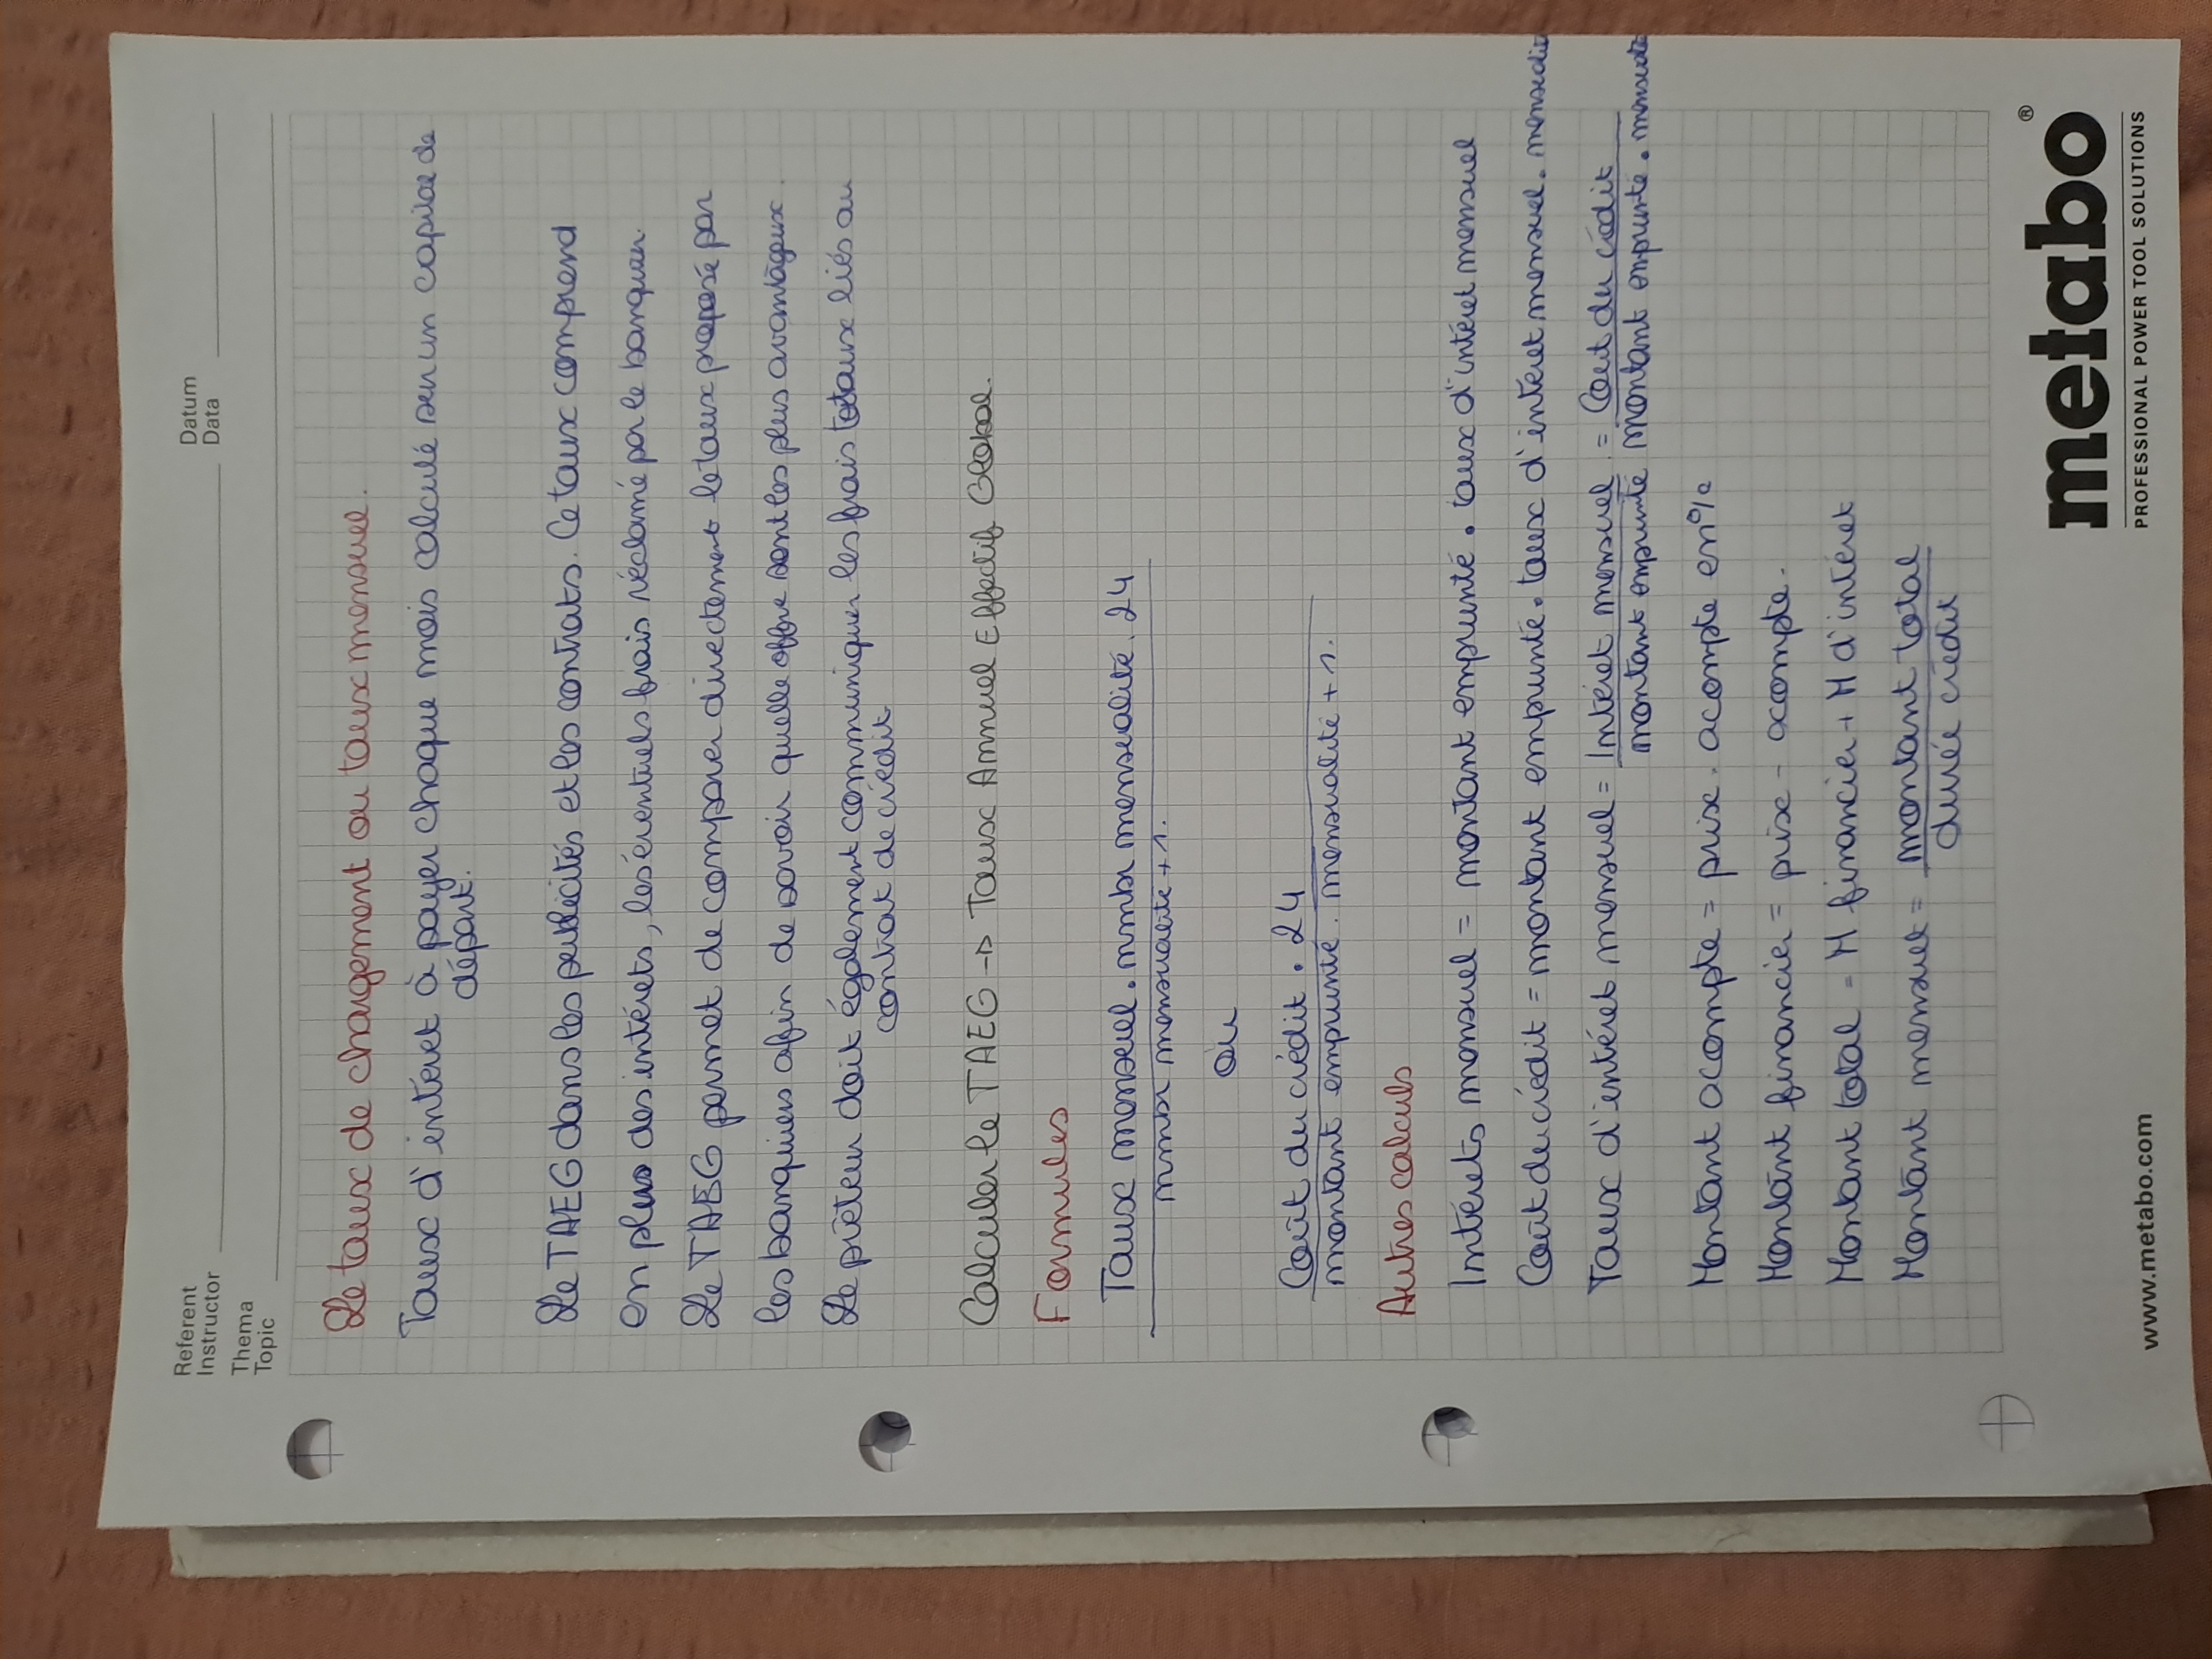 Referent
Instructor
Datum
Data
Thema
Topic
Le taux de chargement ou taux mensuel.
Taux d'intéret à payer chaque mois calculé sur un capital de
départ.
Le TAEG dans les publicités et les contrats. Ce taux comprend
en plus des intérets, les éventuels frais réclamé par le banquier.
Le TAEG permet de comparer directement le taux proposé par
les banquiers afin de savoir quelle offre sont les plus avantageux.
Le prêteur doit également communiquer les frais totaux liés au
contrat de crédit
Calculer le TAEG -> Taux Annuel Effectif Global.
Formules
Taux mensuel. nmbr mensualité. 24
nmbr mensualité + 1.
ou
Coût du crédit . 24
montant emprunté. mensualité + 1.
Autres calculs
Intérets mensuel = montant emprunté . taux d'intéret mensuel
Coût du crédit = montant emprunté. taux d'intéret mensuel. mensualité
Taux d'intéret mensuel = Intéret mensuel = Cout du crédit
montant emprunté montant emprunté . mensualité
Montant acompte = prix. acompte en %
Montant financier = prix - acompte.
Montant total = M financier + M d'intéret
Montant mensuel = montant total
durée crédit
www.metabo.com
metabo®
PROFESSIONAL POWER TOOL SOLUTIONS